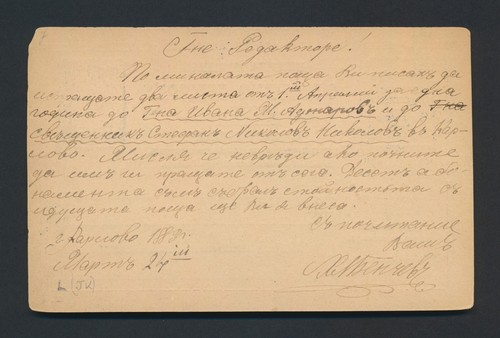 Г-не Редакторе!
По миналата поща Ви писахъ да
испращате два листа отъ 1ий Априлий за една
година до Г-на Ивана М. и до Г-на
свещенникъ Стоянъ Николовъ Николовъ въ Кар-
лово. Мисля че невреди ако почните
да имъ ги пращате отъ сега. Десетъ або-
немента съмъ събралъ стойностьта съ
идущата поща ще Ви я внеса.
Съ почитание
Вашъ
г. Карлово 188
Мартъ 24ий
(JK)